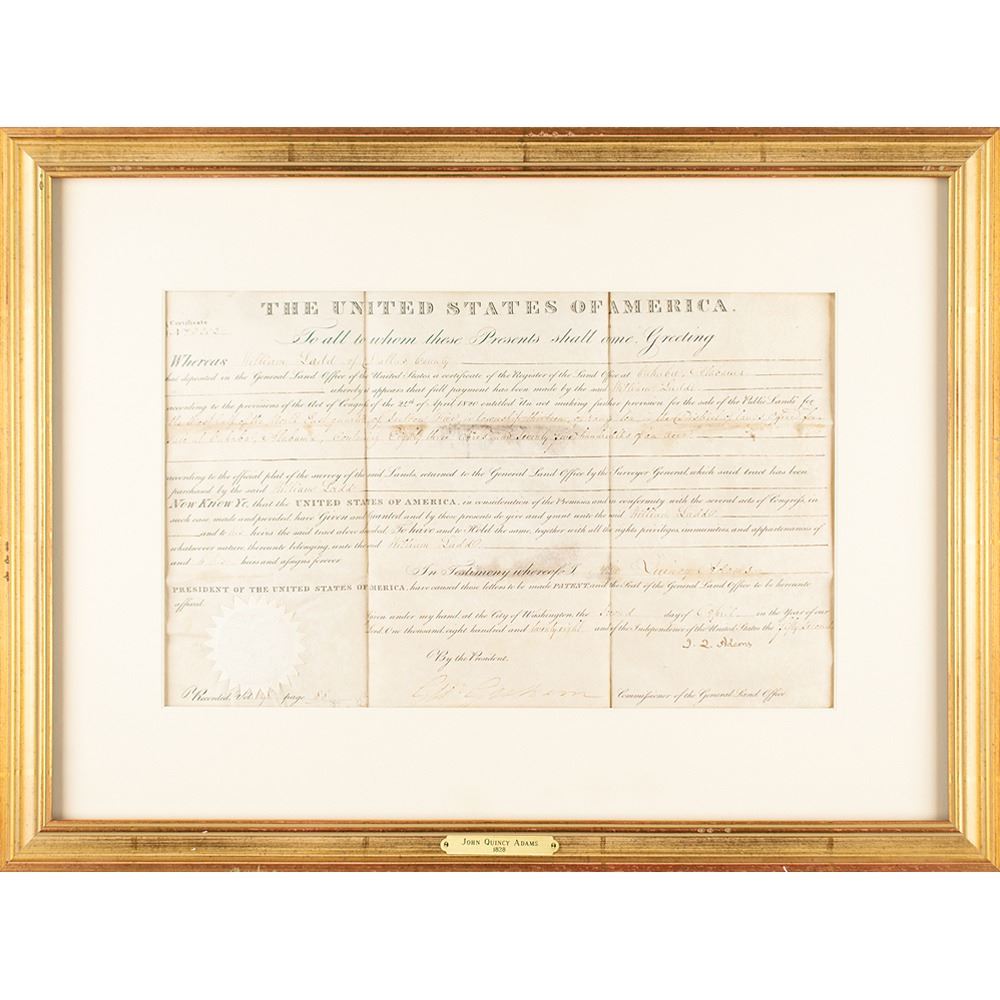 THE UNITED STATES OF AMERICA.
Certificate
To all to whom these Presents shall come, Greeting
Whereas William Ladd of Dallas County
has deposited in the General Land Office of the United States a certificate of the Register of the Land Office at Cahaba Alabama
whereby it appears that full payment has been made by the said William Ladd
according to the provisions of the Act of Congress of the 24th of April 1820 entitled "An act making further provision for the sale of the Public Lands" for
of Section
Alabama, Containing Eighty three acres and Seventy hundredths of an acre
according to the official plat of the survey of the said Lands, returned to the General Land Office by the Surveyor General, which said tract has been
purchased by the said William Ladd
Now Know Ye, that the UNITED STATES OF AMERICA, in consideration of the Promises and in conformity with the several acts of Congress, in
such case made and provided, have Given and Granted and by these presents do give and grant unto the said William Ladd
and to his heirs the said tract above described To have and to Hold the same, together with all the rights, privileges, immunities, and appurtenances of
whatsoever nature, thereunto belonging, unto the said William Ladd
and to his heirs and assigns forever
In Testimony whereof I Quincy Adams
PRESIDENT OF THE UNITED STATES OF AMERICA, have caused these letters to be made PATENT, and the Seal of the General Land Office to be hereunto
affixed.
Given under my hand, at the City of Washington, the Second day of April in the Year of our
Lord One thousand eight hundred and twenty eight and of the Independence of the United States the fifty second
J. Q. Adams
By the President.
Commissioner of the General Land Office
Recorded, Vol page
JOHN QUINCY ADAMS
1828